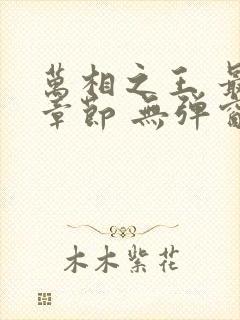 萬相之王 最
章節 無彈窗
木木紫花